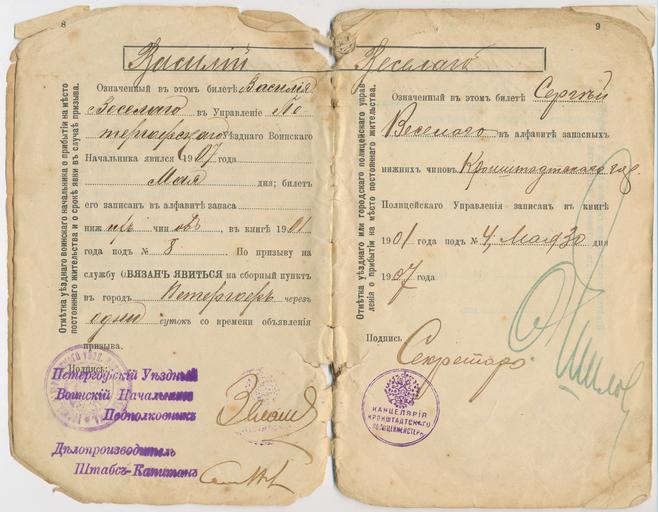 8
Василій
Отмѣтка уѣзднаго воинскаго начальника о прибытіи на мѣсто
постояннаго жительства и о срокѣ явки въ случаѣ призыва.
Означенный въ этомъ билетѣ Василія
Веселаго въ Управленіе По
тергофскаго Уѣзднаго Воинскаго
Начальника явился 1907 года
Мая дня; билетъ
его записанъ въ алфавитѣ запаса
ниж чин овъ, въ книгѣ 1901
года подъ № 8. По призыву на
службу ОБЯЗАНЪ ЯВИТЬСЯ на сборный пунктъ
въ городъ Петергофъ черезъ
одни сутокъ со времени объявленія
призыва.
Подпись:
Петергофскій Уѣздный
Воинскій Начальникъ
Подполковникъ
Дѣлопроизводитель
Штабсъ-Капитанъ
9
Веселаго
Отмѣтка уѣзднаго или городского полицейскаго управ
ленія о прибытіи на мѣсто постояннаго жительства.
Означенный въ этомъ билетѣ Сергѣй
Веселаго въ алфавитѣ запасныхъ
нижнихъ чиновъ Кронштадтскаго гор.
Полицейскаго Управленія записанъ въ книгѣ
1901 года подъ № 4, Мая 30 дня
1907 года
Подпись
Секретарь
КАНЦЕЛЯРІЯ
КРОНШТАДТСКАГО
ПОЛИЦЕЙМЕЙСТЕРА